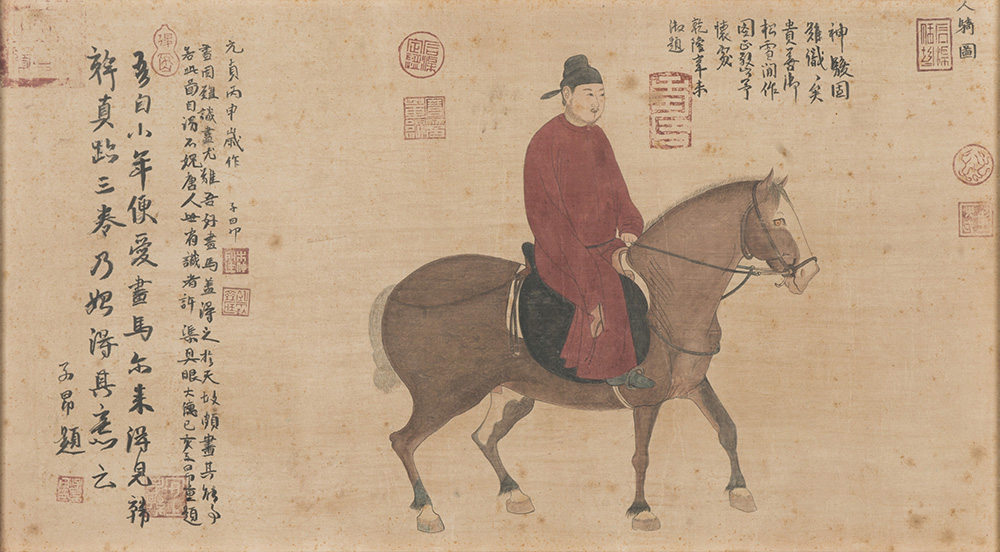 人騎圖
神駿固
難識々矣
貴善御
松雪間作
圖正啟予
懷寓
乾隆辛未
御題
元貞丙申歲作 子昂
畫固難識畫尤難吾好畫馬蓋得之於天故頗盡其能事
若此圖自謂不愧唐人世有識者許渠具眼大德己亥子昂重題
吾自小年便愛畫馬爾來得見韓
幹真跡三卷乃始得其意云
子昂題